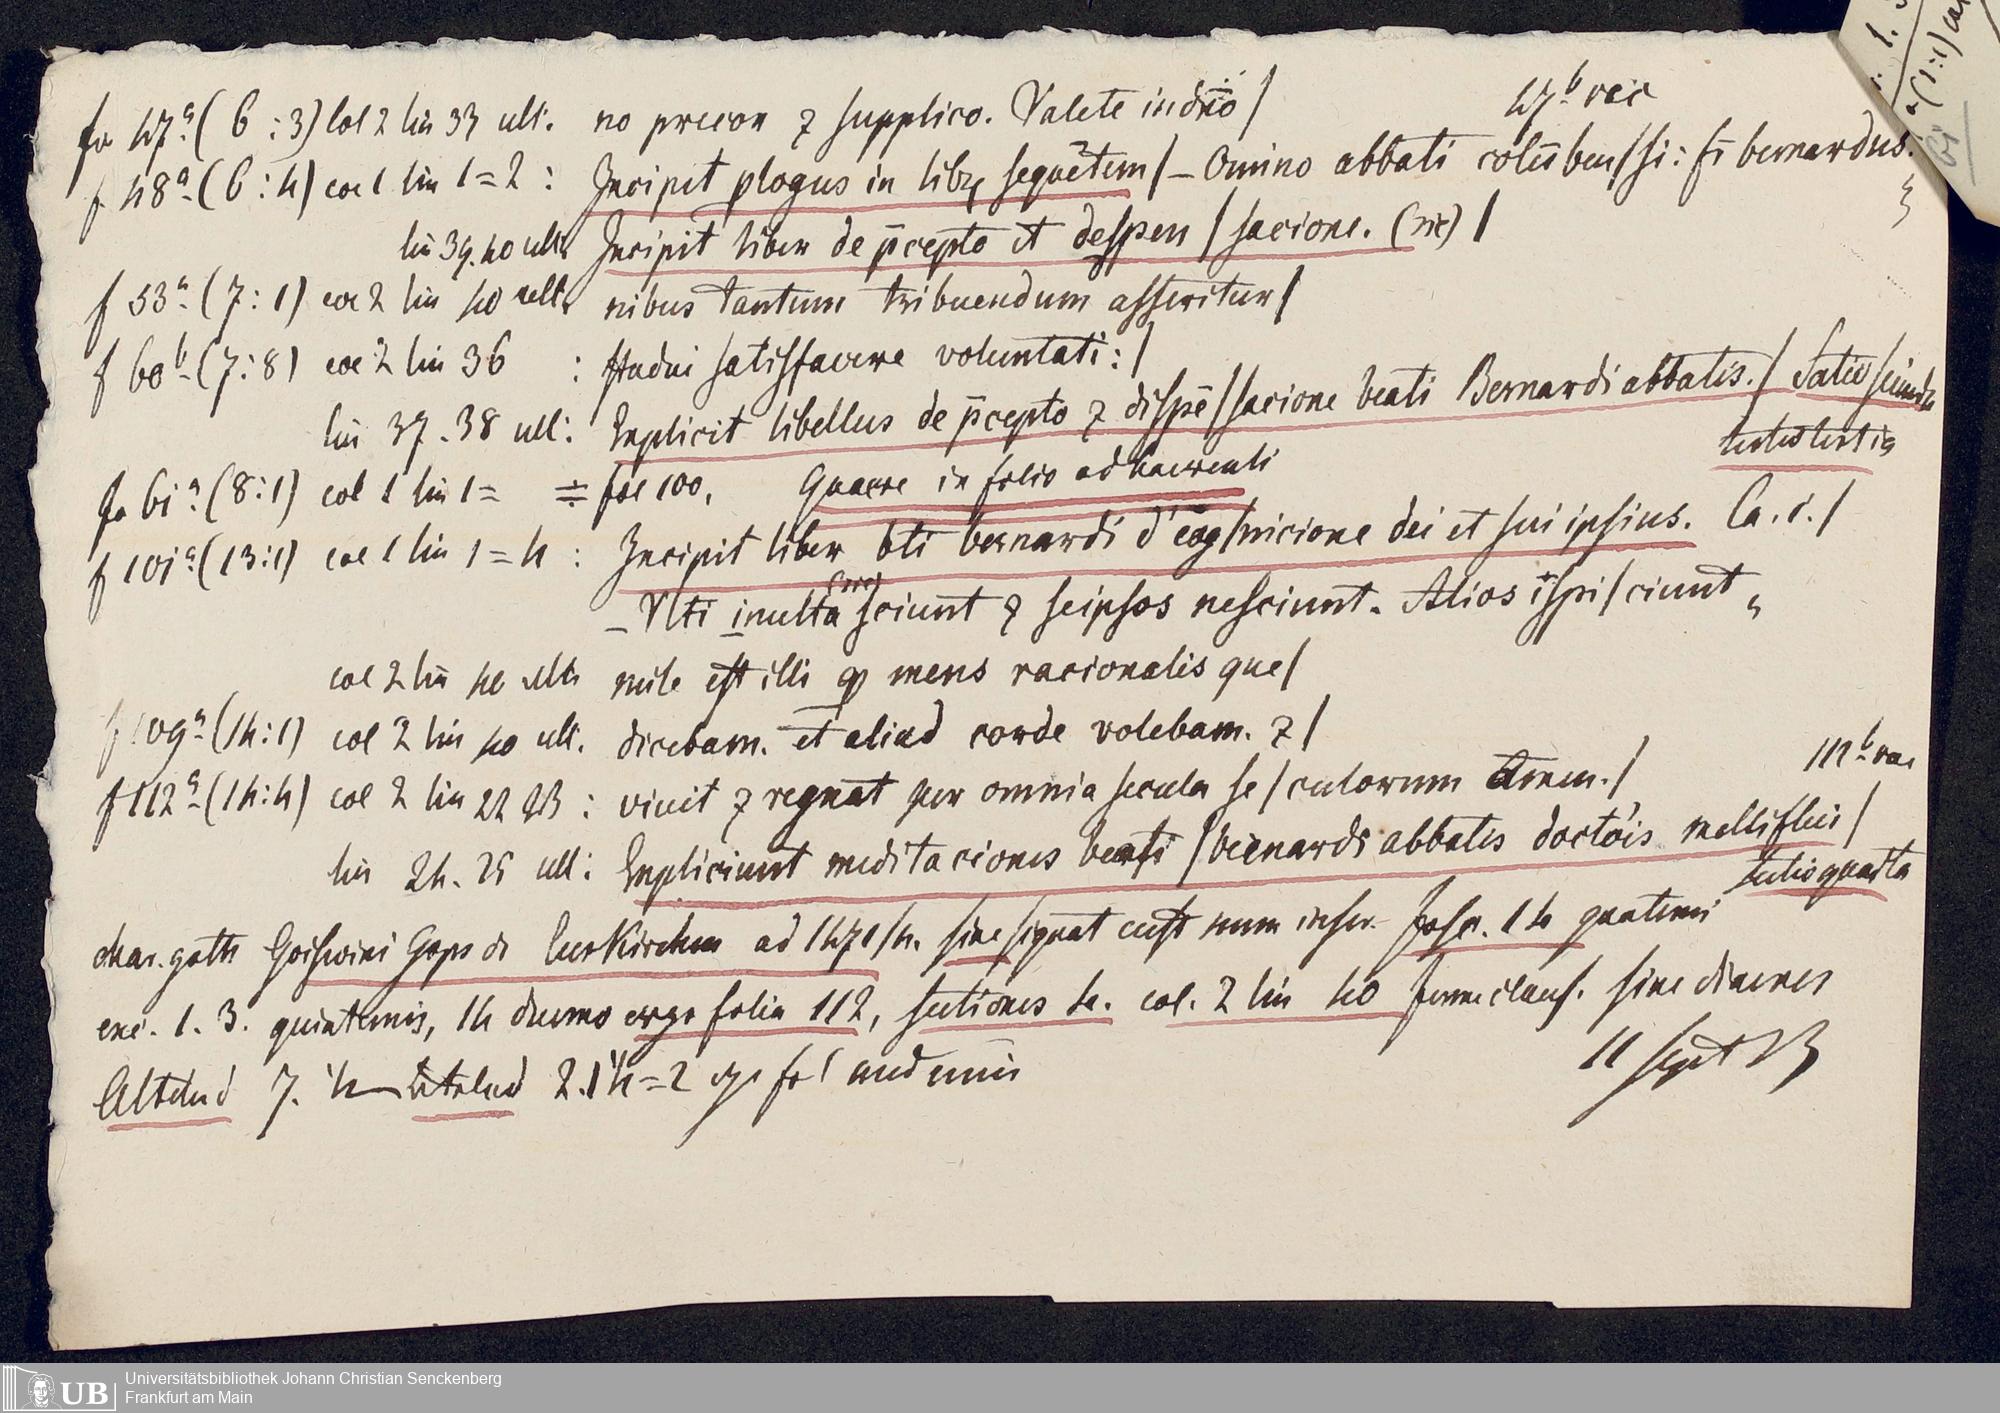 fo 47a (6:3) col 2 lin 33 ult. no precor ⁊ supplico. Valete in dn̄o / 47b vac
f 48a (6:4) col 1 lin 1=2 : Incipit plogus in libꝝ sequētem / — Omino abbati colūben / si: fr̄ bernardus.
lin 39.40 ult. Incipit liber de p̄cepto et despen / sacione. (sic) /
f 53a (7:1) col 2 lin 40 ult. nibus tantum tribuendum asseritur /
f 60b (7:8) col 2 lin 36 : studui satisfacere voluntati: /
lin 37.38 ult: Explicit libellus de p̄cepto ⁊ dispē / sacione beati Bernardi abbatis. / Sectio secunda
fo 61a (8:1) col 1 lin 1= ÷ fol 100. Quaere in folio adhaerenti
sectio tertia
f 101a (13:1) col 1 lin 1=4 : Incipit liber bti bernardi d' cōg / nicione dei et sui ipsius. Ca. i. /
— Vlti inulta (sic) sciunt ⁊ seipsos nesciunt. Alios īspi / ciunt
col 2 lin 40 ult. mile est illi ꝙ mens racionalis que /
f 109a (14:1) col 2 lin 40 ult. dicebam. et aliud corde volebam. ⁊ /
f 112a (14:4) col 2 lin 22 23 : viuit ⁊ regnat per omnia secula se / culorum Amen. / 112b vac
lin 24.25 ult: Expliciunt meditaciones beati / bernardi abbatis doctois melliflui /
sectio quarta
char. goth Goiswini Gops de Euskirchen ad 1471/4. sine signat cust num inscr. fasc. 14 quaterni
exc. 1. 3. quinternis, 14 duerno ergo folia 112, sectiones 4. col. 2 lin 40
sine
11 sept